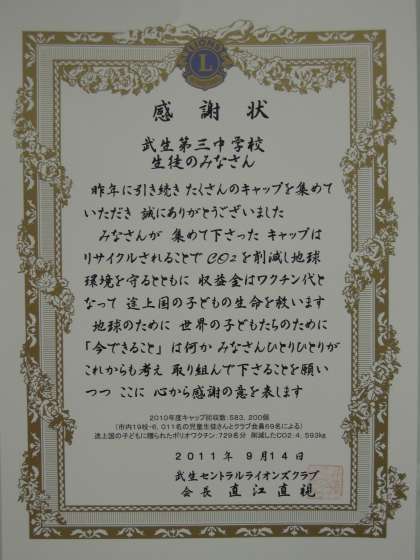 LIONS
L
感謝状
武生第三中学校
生徒のみなさん
昨年に引き続き たくさんのキャップを集めて
いただき 誠にありがとうございました
みなさんが 集めて下さった キャップは
リサイクルされることで CO2を削減し地球
環境を守るとともに 収益金はワクチン代と
なって 途上国の子どもの生命を救います
地球のために 世界の子どもたちのために
「今できること」は何か みなさんひとりひとりが
これからも考え 取り組んで下さることを願い
つつ ここに 心から感謝の意を表します
2010年度キャップ回収数:583,200個
(市内19校・6,011名の児童生徒さんとクラブ会員69名による)
途上国の子どもに贈られたポリオワクチン:729名分 削減したCO2:4,593kg
2011年 9月14日
武生セントラルライオンズクラブ
会長 直江直視